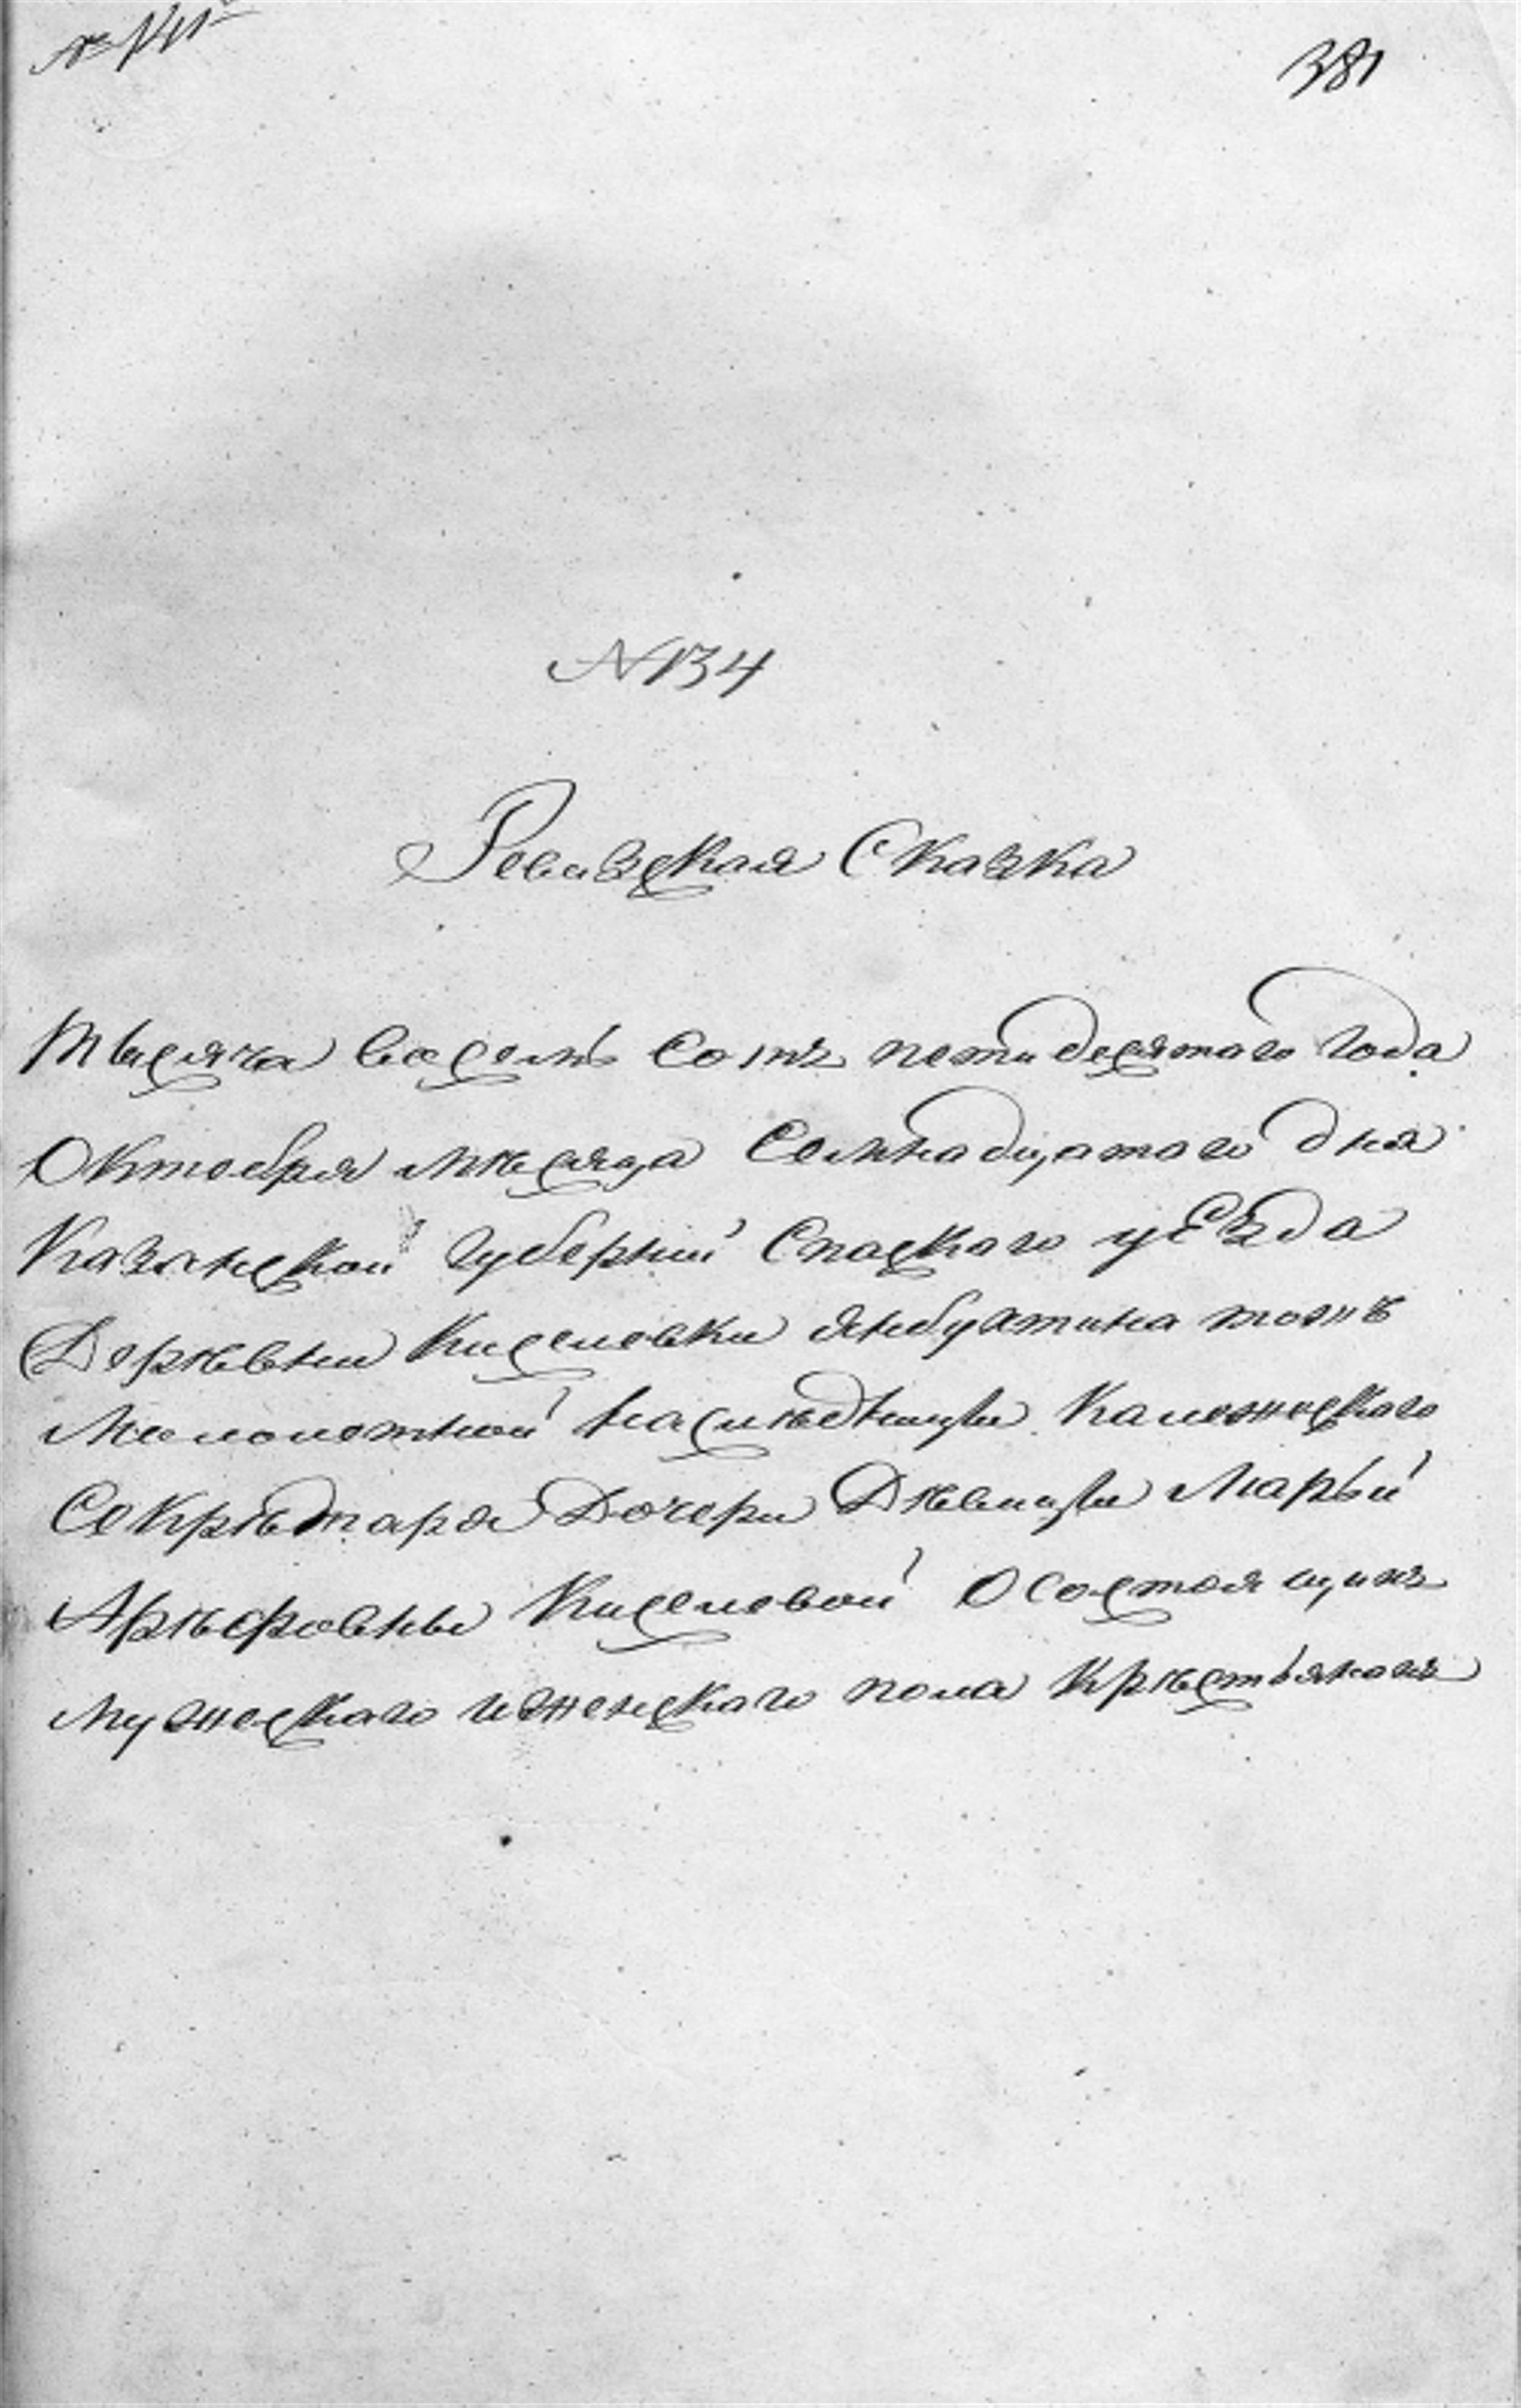 № 141
381
N 134
Ревизская Сказка
Тысяча восемь сотъ пети десятаго года
Октебря мѣсяца Семнадцатаго дня
Казанской губерний Спаскаго уѢзда
Дерѣвни Киселевки Янбухтина тожъ
Малолетной наслѣдницы Калежскаго
Секрѣтаря Дочери Дѣвицы Марьи
Арѣфовны Киселевой О Состоящихъ
Мужескаго иженскаго пола Крѣстьянахъ